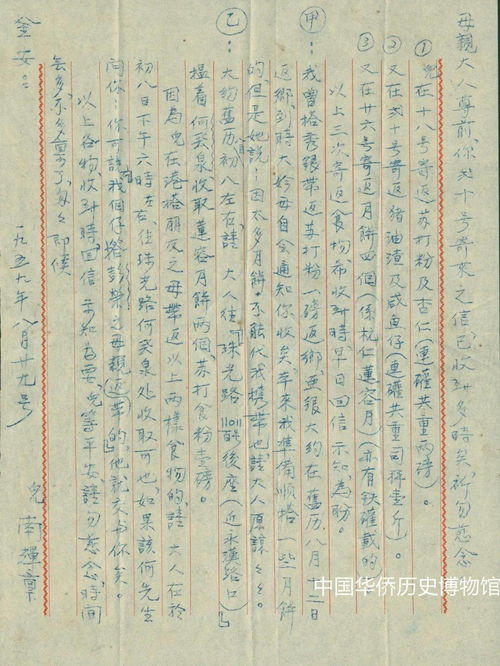 母親大人尊前：你式十号寄來之信已收到多時矣祈勿慈念
①兒在十八号寄返苏打粉及杏仁（連罐共重兩磅）。
②又在式十号寄返猪油渣及咸魚仔（連罐共重司秤壹斤）。
③又在廿六号寄返月餅四個（係杭仁蓮容月）（亦有铁罐載的）
以上三次寄返食物希收到時早日回信示知為盼。
甲：我曾搭秀銀帶返苏打粉一磅返鄉，秀銀大約在舊历八月初二日
返鄉，到時大妗母自会通知你收矣，本來我準備順搭一些月餅
的，但是她說：因太多月餅，不能代我携帶也，請大人原諒々々。
乙：大約舊历八月初八左右請 大人往珠光路110号後座（近永漢路口）
搵着何买泉收取蓮容月餅兩個，苏打食粉壹磅。
因為兒在港搭朋友之母帶返以上兩樣食物的，請 大人在於
初八日下午六時左右，往珠光路何买泉处收取可也，如果該何先生
問你：你可說我個仔搭彭華之母親返來的，他就交与你矣。
以上各物收到時回信示知為要，兒等平安請勿慈念，時間
無多，不多稟了，多々即候
金安：
一九五九年八月廿九号 兒 南輝稟
中国华侨历史博物馆